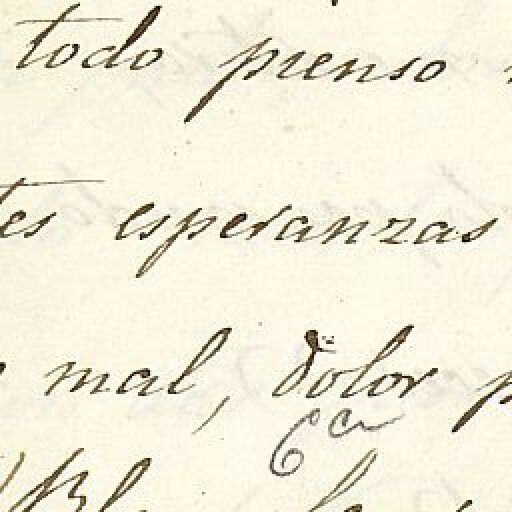 todo pienso
tes esperanzas
mal, dolor p
6a